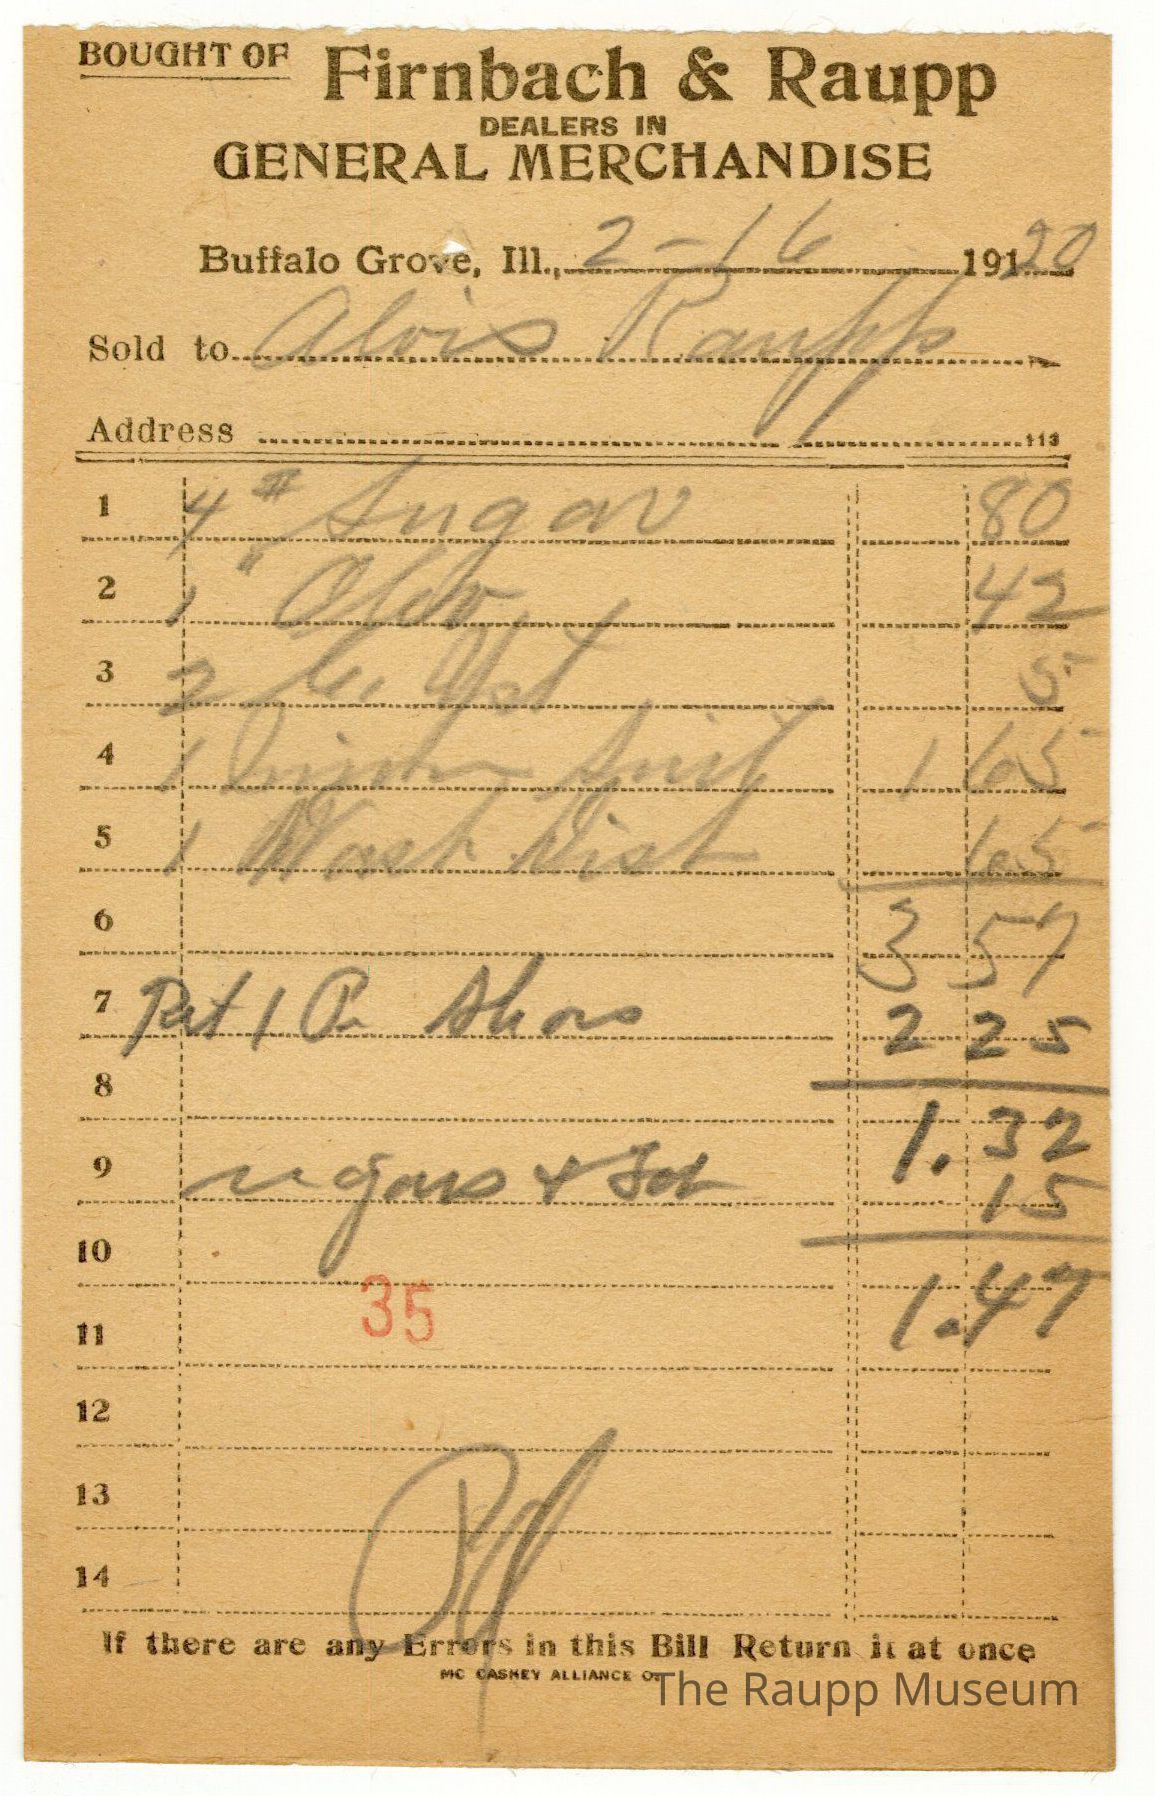 BOUGHT OF Firnbach & Raupp
DEALERS IN
GENERAL MERCHANDISE
Buffalo Grove, Ill., 2-16 191 20
Sold to Alois Raupp
Address 113
1 4 # Sugar 80
2 1 " Oleo 42
3 2 C. Yst 5
4 1 Union Suit 1 65
5 1 Wash 65
6 3 57
7 Ret 1 P. Shoes 2 25
8 1.32
9 & 15
10
1.47
35
11
12
13
14
If there are any Errors in this Bill Return it at once
MC CASKEY ALLIANCE O.
The Raupp Museum